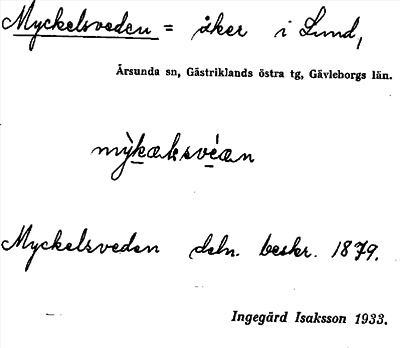 Myckelsveden = åker i Lund,
Årsunda sn, Gästriklands östra tg, Gävleborgs län.
mỳkælsvéan
Myckelsveden deln. beskr. 1879.
Ingegärd Isaksson 1933.